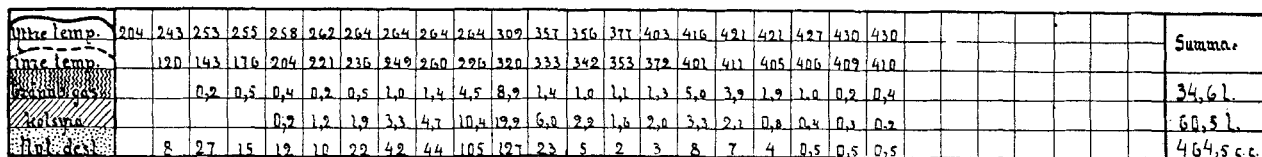 Yttre temp. 204 243 253 255 258 262 264 264 264 264 309 357 356 377 403 416 421 421 427 430 430 Summa:
Inre temp. 120 143 176 204 221 236 249 260 296 320 333 342 353 372 401 411 405 406 409 410
0,2 0,5 0,4 0,2 0,5 1,0 1,4 4,5 8,9 1,4 1,0 1,1 1,3 5,0 3,9 1,9 1,0 0,2 0,4 34,6 l.
Kolsyra 0,2 1,2 1,9 3,3 4,7 10,4 19,9 6,0 2,2 1,6 2,0 3,3 2,1 0,8 0,4 0,3 0,2 60,5 l.
8 27 15 12 10 22 42 44 105 127 23 5 2 3 8 7 4 0,5 0,5 0,5 464,5 c.c.